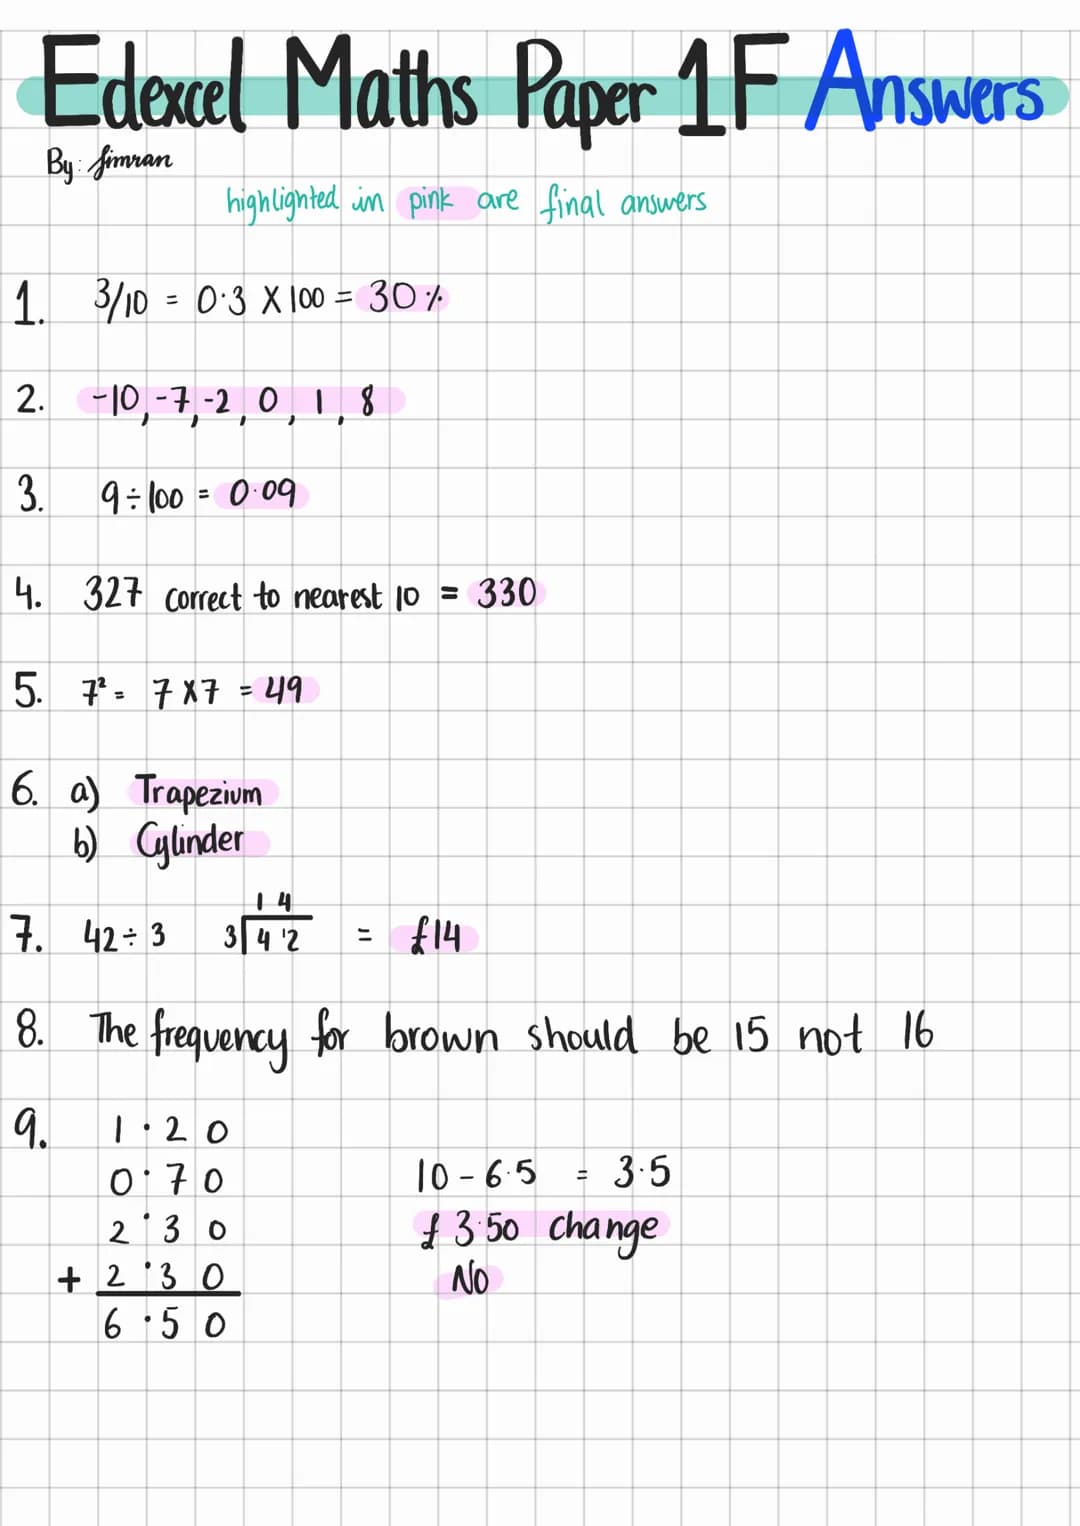 Edexcel Maths Paper 1F Answers
By: Simran
highlighted in pink are final answers
1. 3/10 = 0.3 X 100 = 30%
2. -10, -7, -2, 0, 1, 8
3. 9 ÷ 100 = 0.09
4. 327 correct to nearest 10 = 330
5. 7² = 7 X 7 = 49
6. a) Trapezium
b) Cylinder
1 4
7. 42 ÷ 3 3 4 ¹2 = £14
8. The frequency for brown should be 15 not 16
9. 1.20
0.70
10 - 6.5 = 3.5
2.30
£3.50 change
+ 2.30
No
6.50